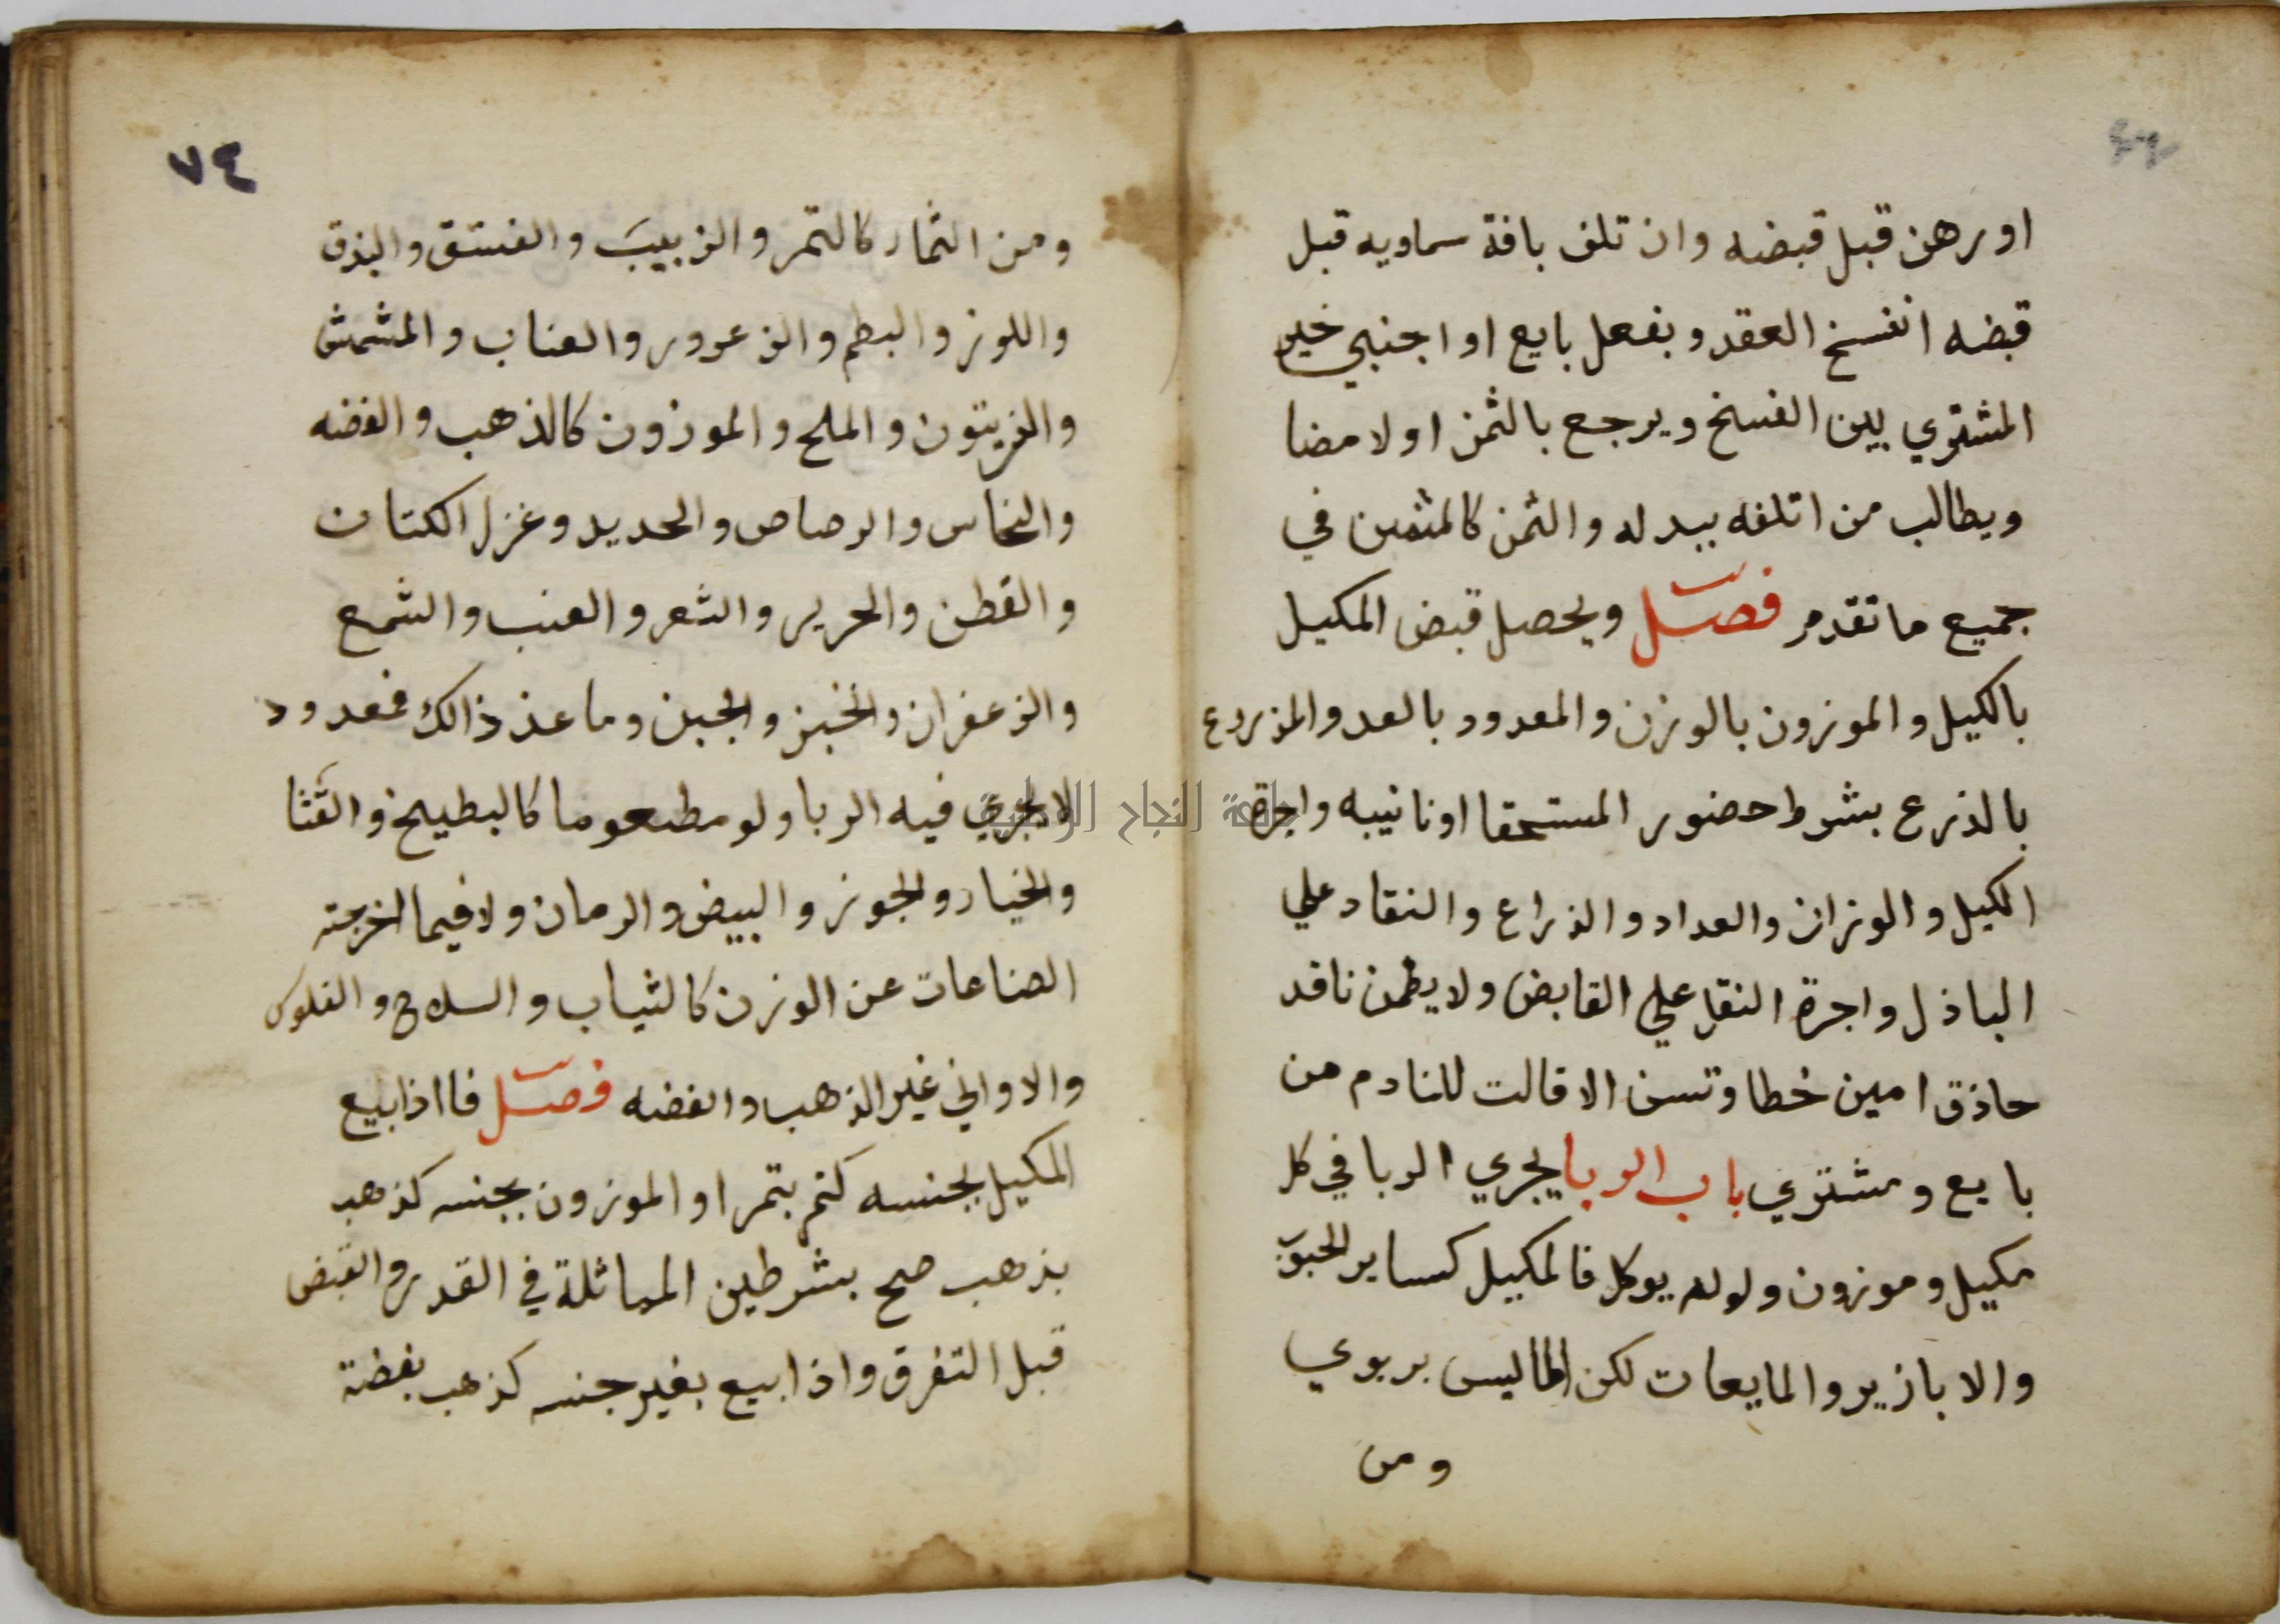 او رهن قبل قبضه وان تلف بافة سماويه قبل
قبضه انفسخ العقد و بفعل بايع او اجنبي خير
المشتري بين الفسخ ويرجع بالثمن اولا مضا
ويطالب من اتلفه ببدله والثمن كالمثمن في
جميع ما تقدم فصل ويحصل قبض المكيل
بالكيل والموزون بالوزن والمعدود بالعد والمزروع
بالذرع بشرط حضور المستحقا او نائيبه واجرة
الكيل والوزان والعداد والذراع والنقاد علي
الباذل واجرة النقل علي القابض ولا يظمن ناقد
حاذق امين خطا وتسن الاقالت للنادم من
بايع ومشتري باب الربا يجري الربا في كل
مكيل وموزون ولو لم يوكل فالمكيل كساير الحبوب
والابازير والمايعات لكن الما ليس بربوي
ومن
٧٤
ومن الثمار كالتمر والزبيب والفستق والبندق
واللوز والبطم والزعرور والعناب والمشمش
والزيتون والملح والموزون كالذهب والفضه
والنحاس والرصاص والحديد وغزل الكتان
والقطن والحرير والشعر والعنب والشمع
والزعفران والخبز والجبن وما عند ذالك فمعدود
لا يجري فيه الربا ولو مطعوما كالبطيخ والقثا
والخيار والجوز والبيض والرمان ولا فيما اخرجته
الصناعات عن الوزن كالثياب والسلاح والفلوس
والاواني غير الذهب والفضه فصل فااذا بيع
المكيل بجنسه كتمر بتمر او الموزون بجنسه كذهب
بذهب صح بشرطين المماثلة في القدر والقبض
قبل التفرق واذا بيع بغير جنسه كذهب بفضة
جامعة النجاح الوطنية